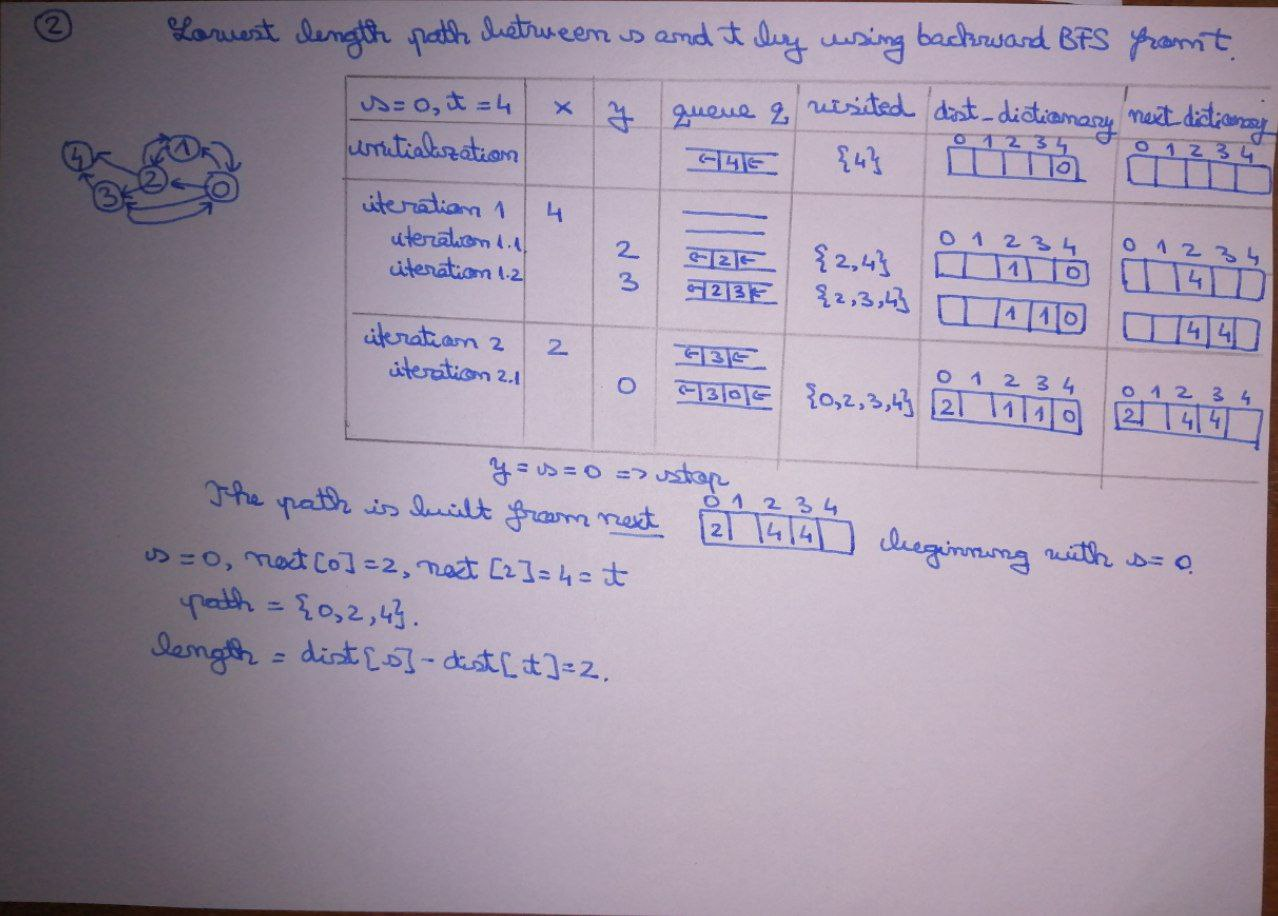 2 Lowest length path between s and t by using backward BFS from t.
s=0, t=4 x y queue q visited dist_dictionary next_dictionary
initialization ←|4|← {4} 0 1 2 3 4 | | | | |0| 0 1 2 3 4 | | | | | |
iteration 1 4
iteration 1.1 2 ←|2|← {2,4} 0 1 2 3 4 | | |1| |0| 0 1 2 3 4 | | |4| | |
iteration 1.2 3 ←|2|3|← {2,3,4} | | |1|1|0| | | |4|4| |
iteration 2 2 ←|3|←
iteration 2.1 0 ←|3|0|← {0,2,3,4} 0 1 2 3 4 |2| |1|1|0| 0 1 2 3 4 |2| |4|4| |
y=s=0 => stop
The path is built from next 0 1 2 3 4 |2| |4|4| | beginning with s=0.
s=0, next[0]=2, next[2]=4=t
path = {0,2,4}.
length = dist[s]-dist[t]=2.
4 1 2 0 3